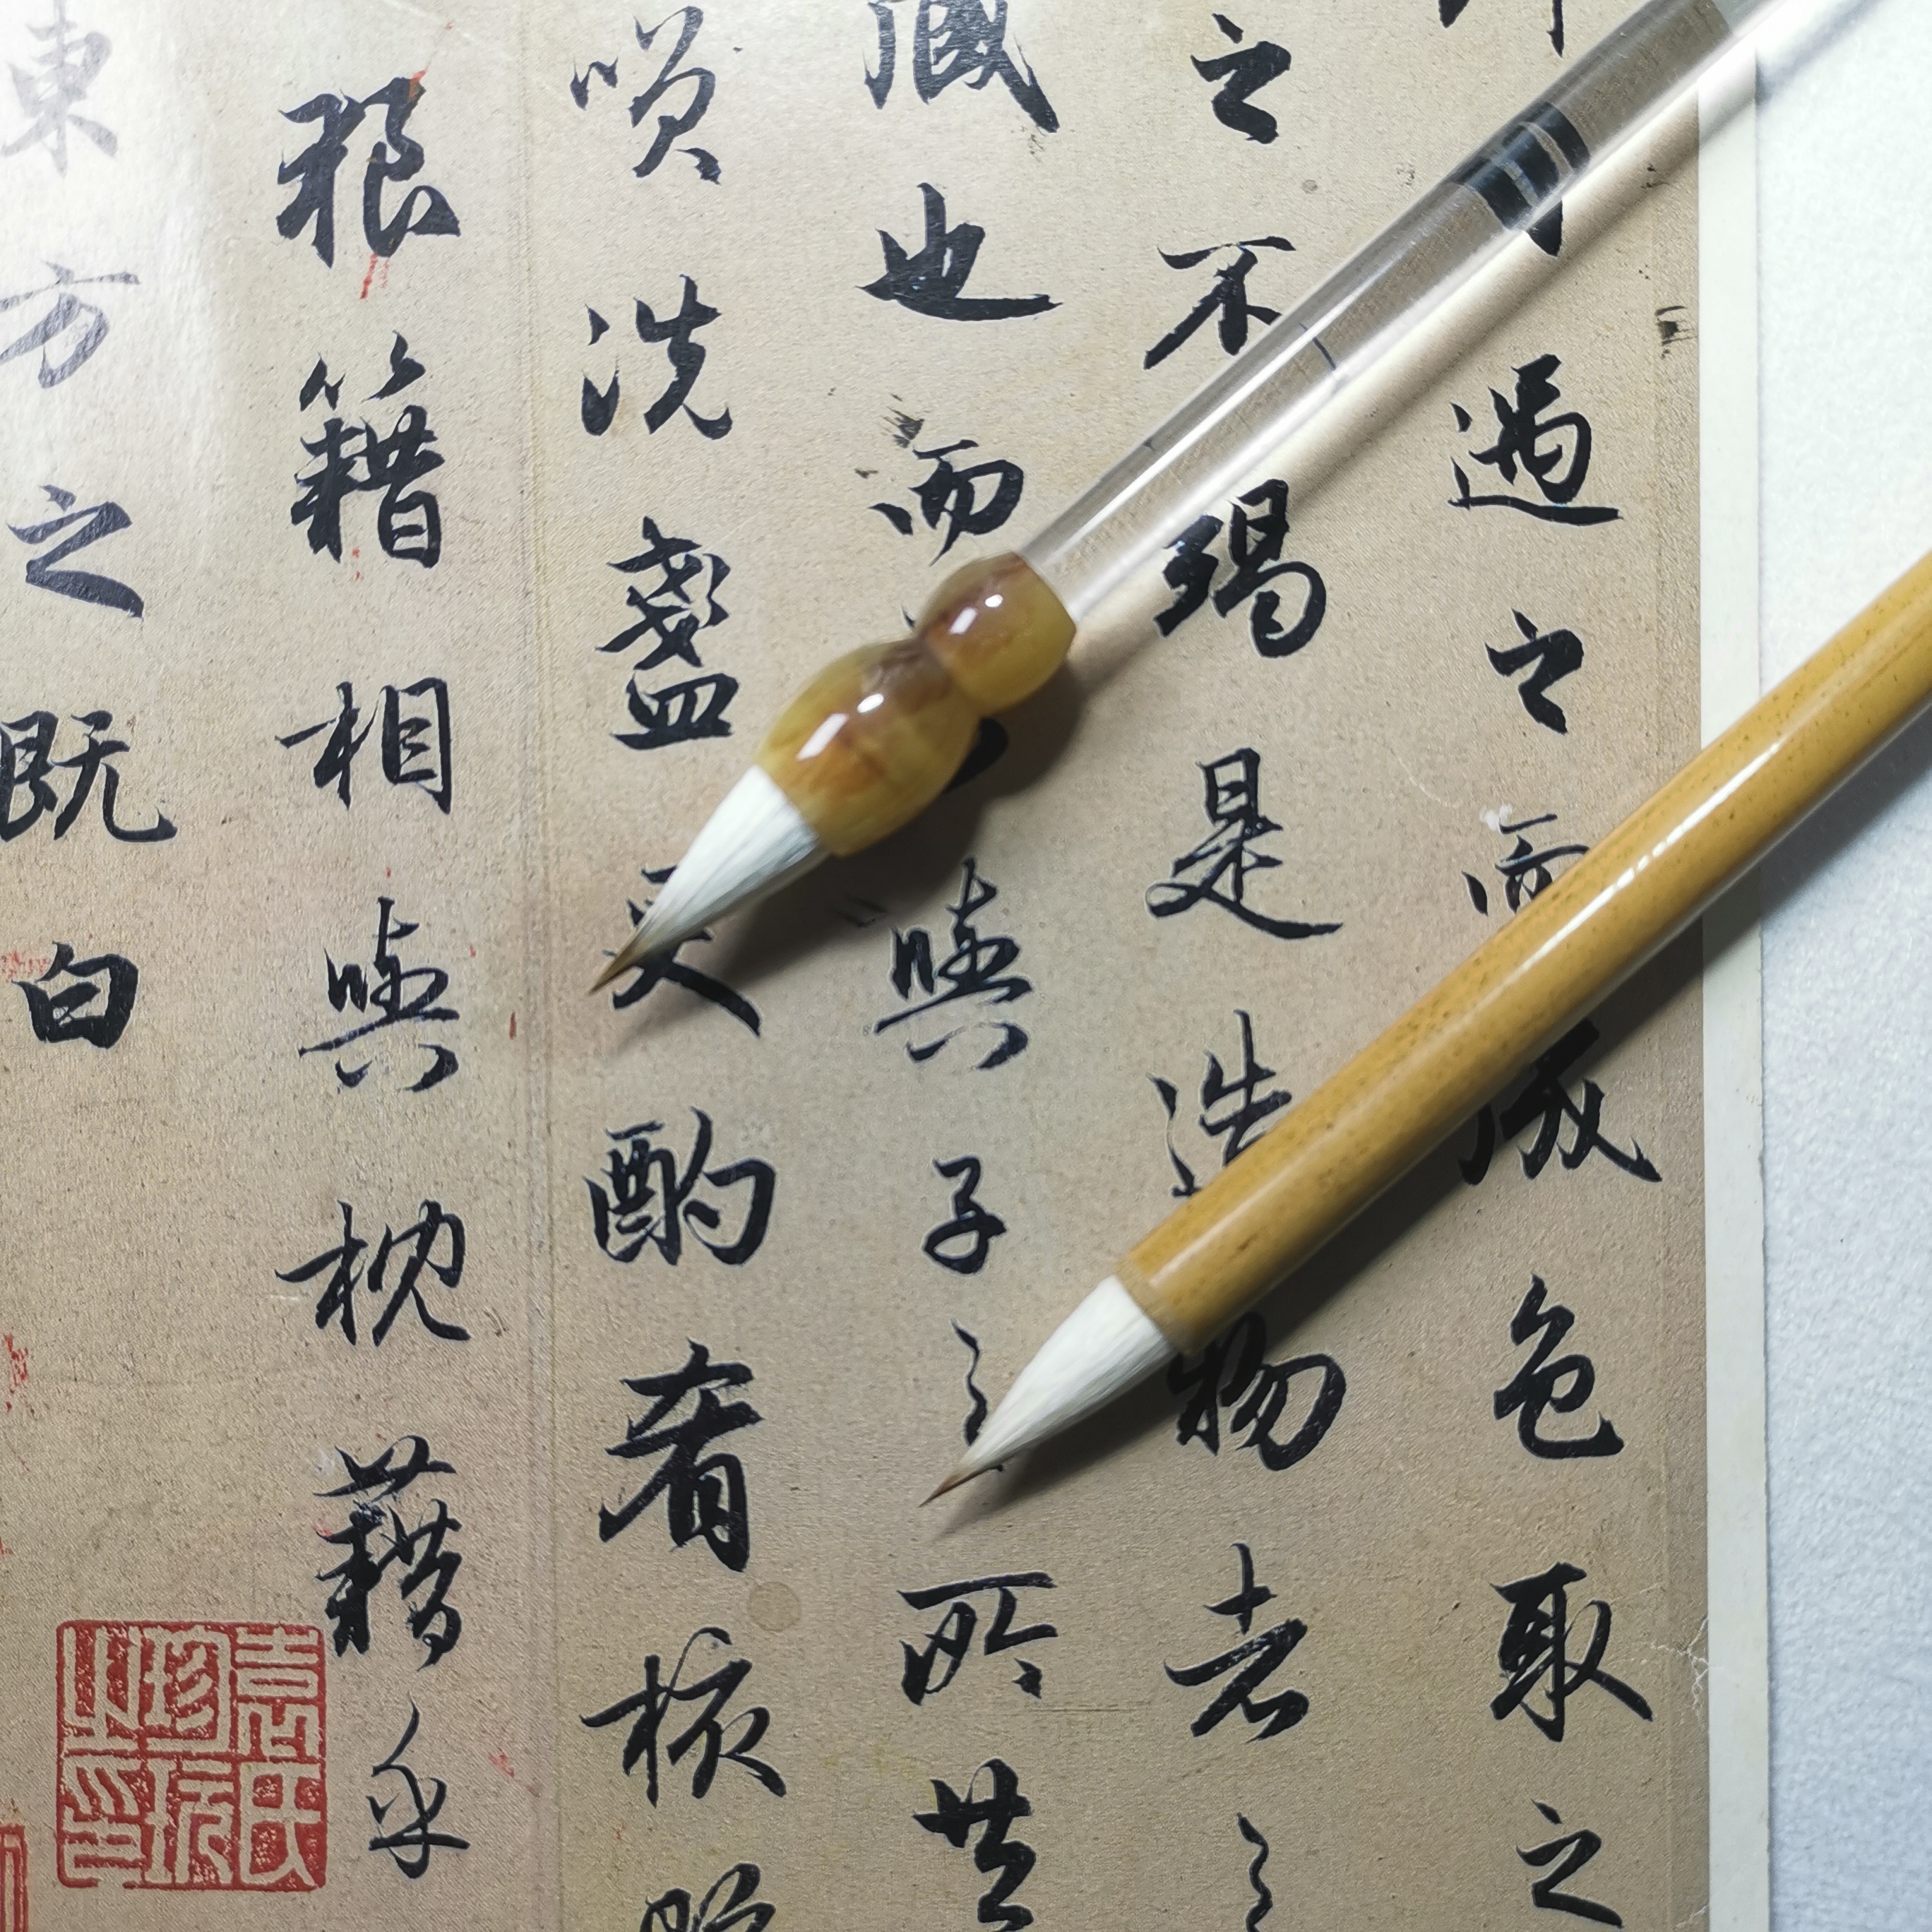 遇之而成色取之
之不竭是造物者之
藏也而與子之所共
咲洗盞更酌肴核既
狼籍相與枕藉乎
東方之既白